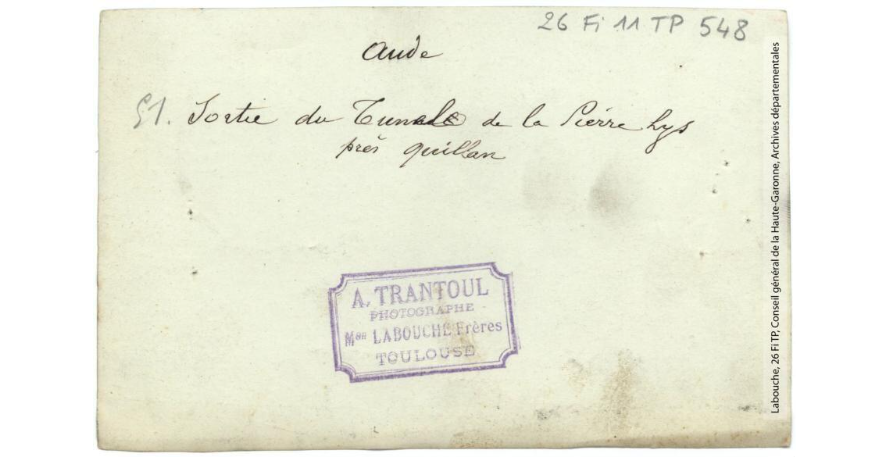 26 Fi 11 TP 548
Aude
51. Sortie du Tunele de la Pierre Lys
près Quillan
A. TRANTOUL
PHOTOGRAPHE
Mon LABOUCHE Frères
TOULOUSE
Labouche, 26 FI TP, Conseil général de la Haute-Garonne, Archives départementales